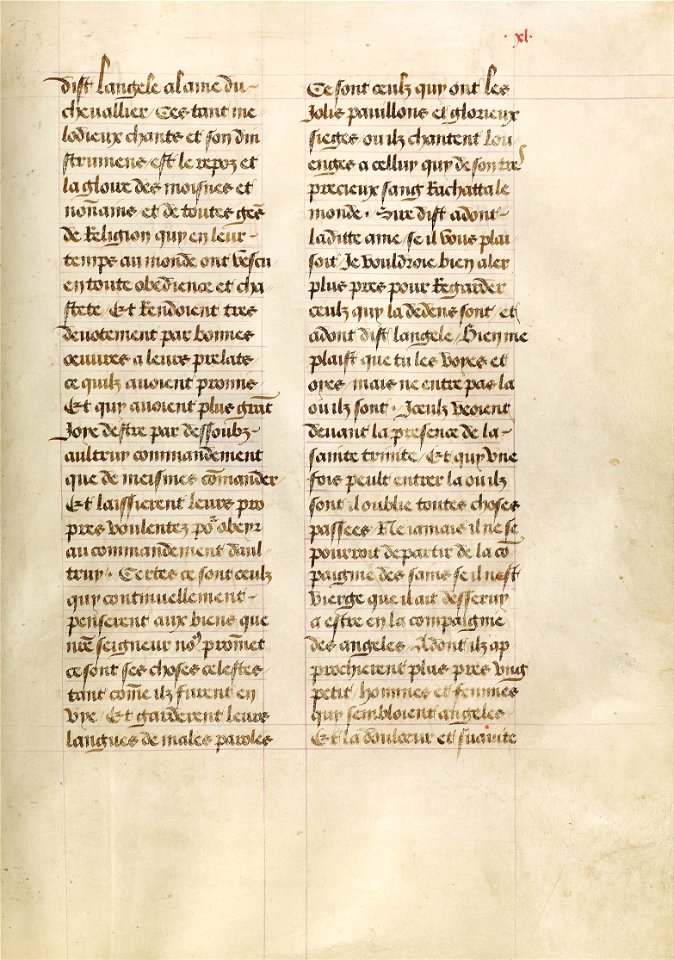 ·xl·
dist langele a lame du
chevallier / Ces tant me
lodieux chants et son din
strumens / est le repoz et
la gloire des moisnes et
nonnains et de toutes gēs
de Religion quy en leur
temps au monde ont vescu
en toute obedience et cha
stete / Et Rendoient tres
devotement par bonnes
oeuvres a leurs prelats
ce quilz avoient promis
Et quy avoient plus grāt
Joye destre par dessoubz
aultruy commandement
que de meismes cōmander
Et laissierent leurs pro
pres voulentez po² obeyr
au commandement daul
truy . Certes ce sont ceulz
quy continuellement
penserent aux biens que
nr̄e seigneur no⁹ promet
ce sont ses choses celestes
tant com̄e ilz furent en
vye / Et garderent leurs
langues de males paroles
Ce sont ceulz quy ont les
Jolis pavillons et glorieux
sieges ou ilz chantent lou
enges a celluy quy de son tres
precieux sang Rachatta le
monde . Sire dist adont
laditte ame / se il vous plai
soit Je vouldroie bien aler
plus pres pour Regarder
ceulz quy la dedens sont et
adont dist langele / Bien me
plaist que tu les voyes et
oyes / mais ne entre pas la
ou ilz sont . Iceulz veoient
devant la presence de la
sainte trinite / Et quy une
fois peult entrer la ou ilz
sont il oublie toutes choses
passees / Ne jamais il ne se
pourroit departir de la cō
paignie des sains se il nest
vierge que il ait desservy
a estre en la compaignie
des angeles . Adont ilz ap
prochierent plus pres ung
petit / hommes et femmes
quy sembloient angeles
Et la doulceur et suavite